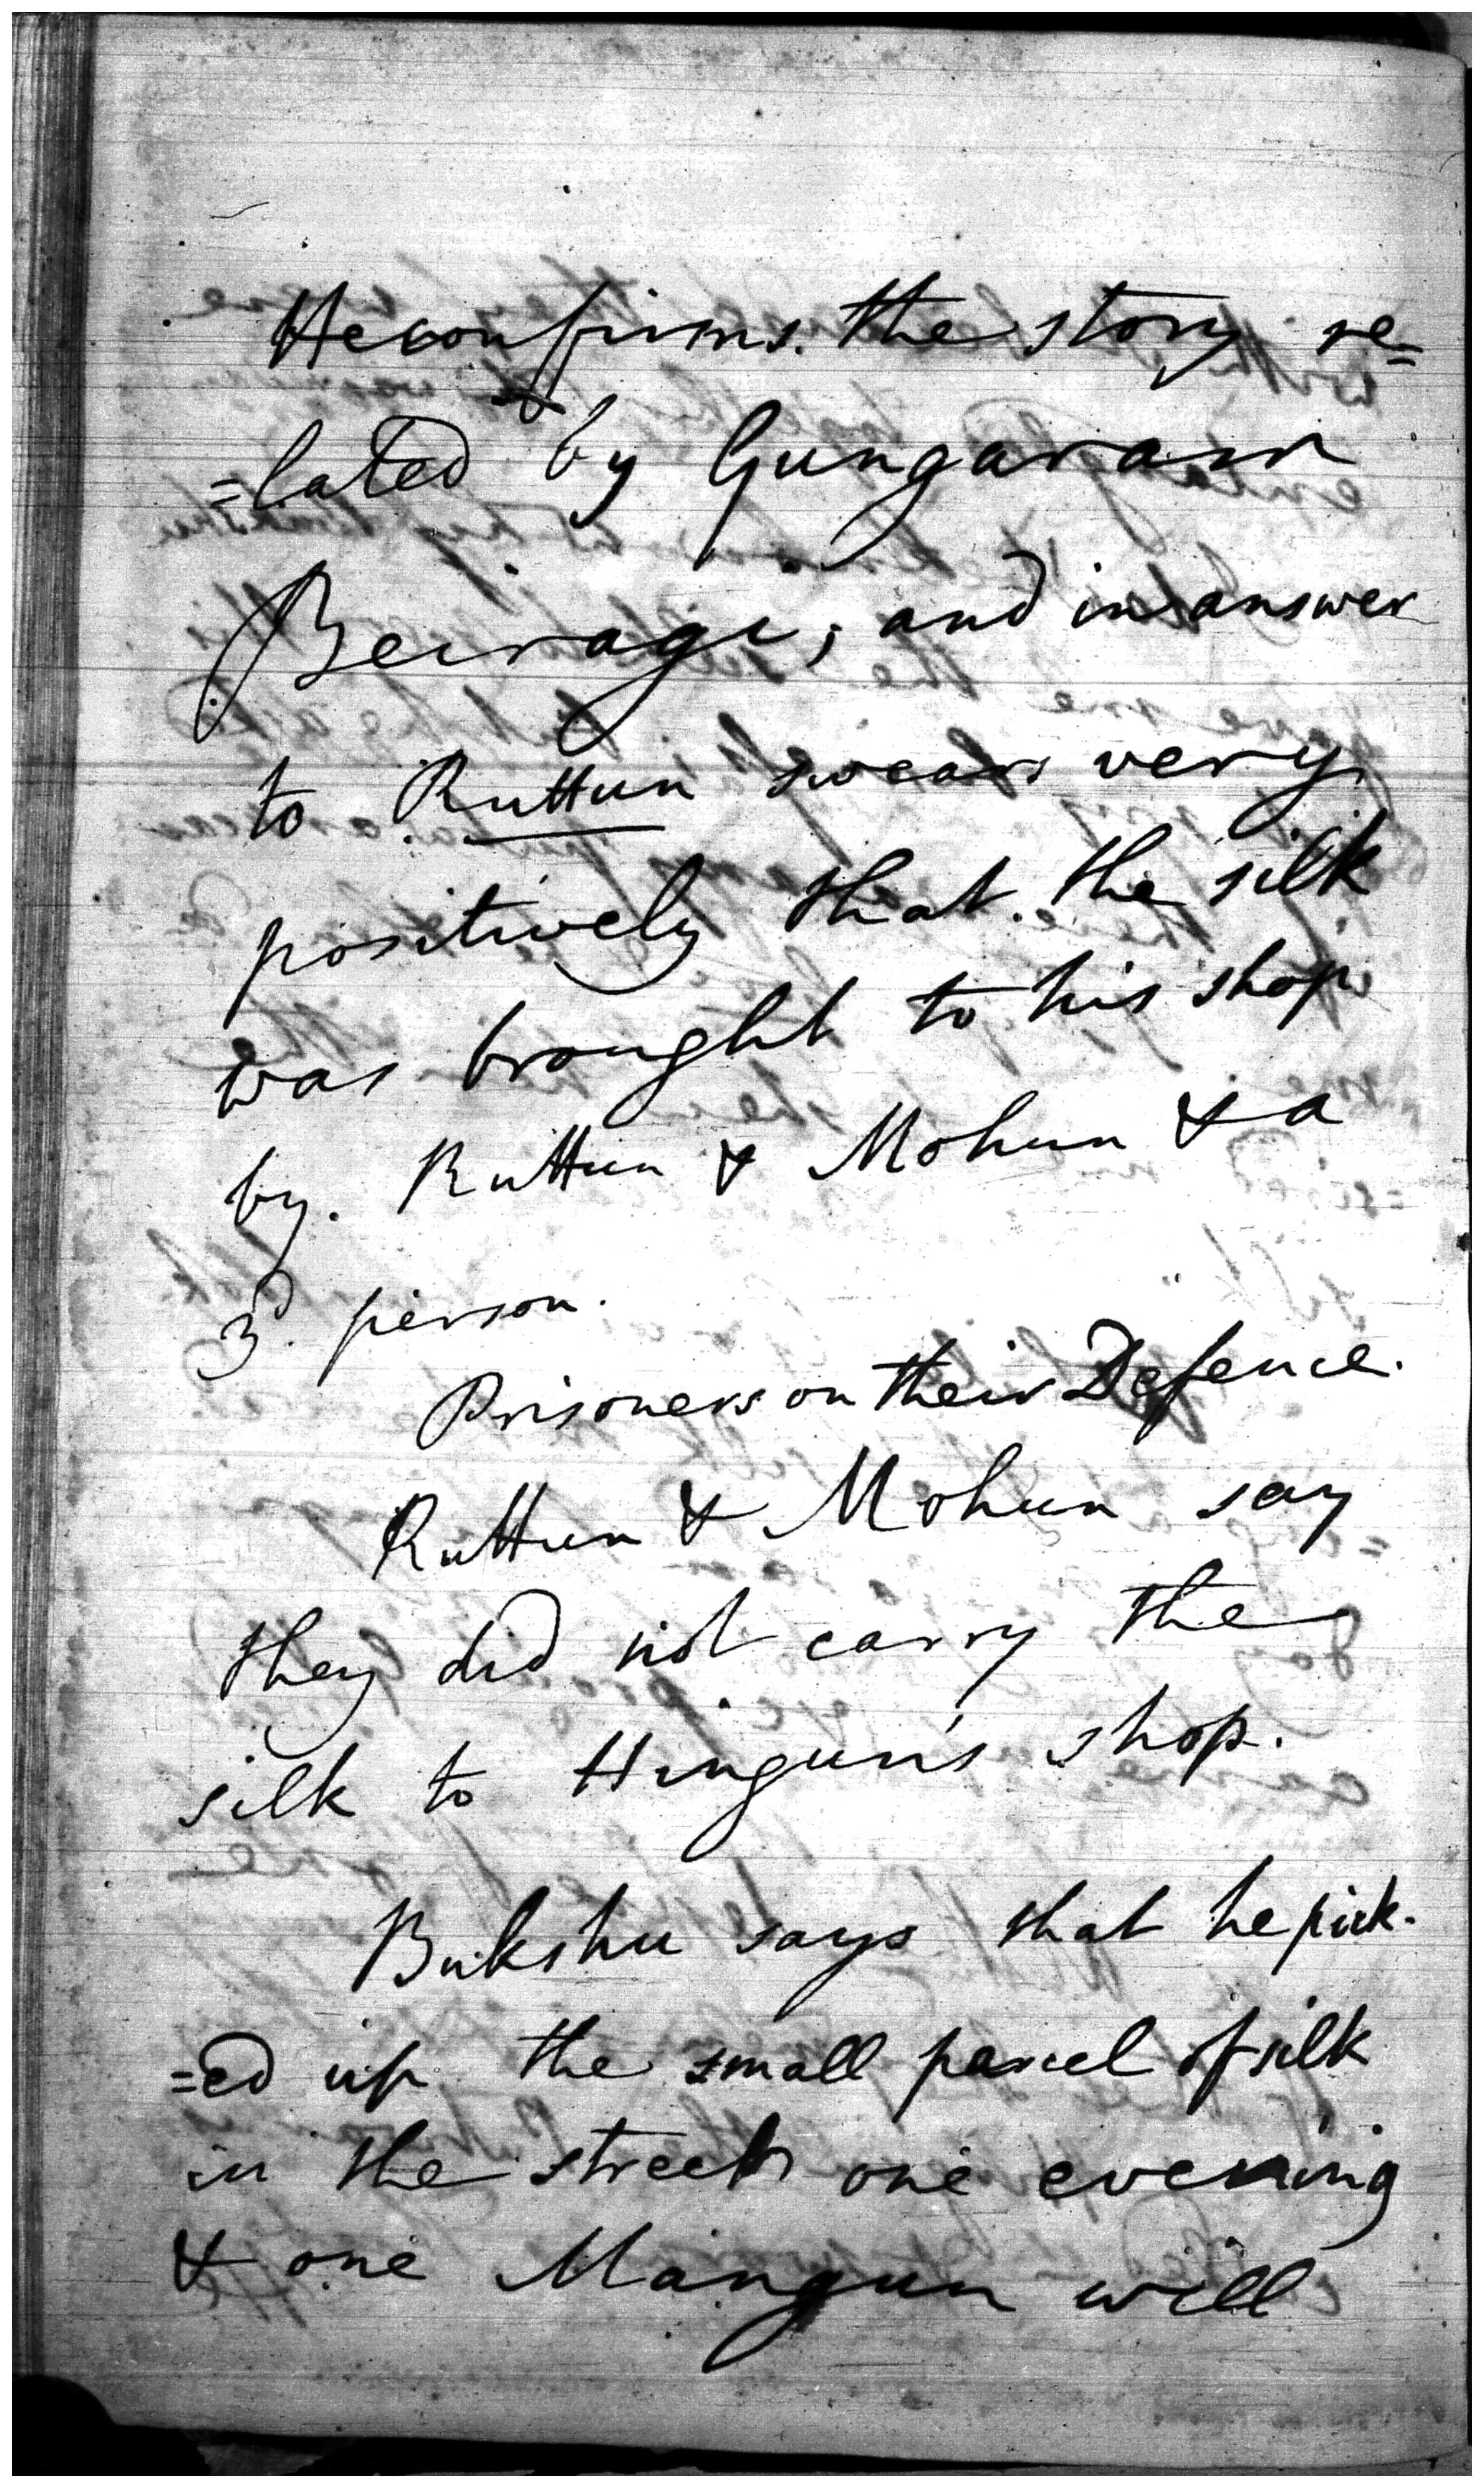 He confirms. the story re=
=lated by Gungaram
Beiragi; and in answer
to Ruttun swears very
positively that. the silk
was brought to his shop
by. Ruttun & Mohun & a
3d. person.
Prisoners on their Defence.
Ruttun & Mohun say
they did not carry the
silk to Hingun's shop.
Bukshu says that he pick.
=ed up the small parcel of silk
in the street one evening
& one Mangun will